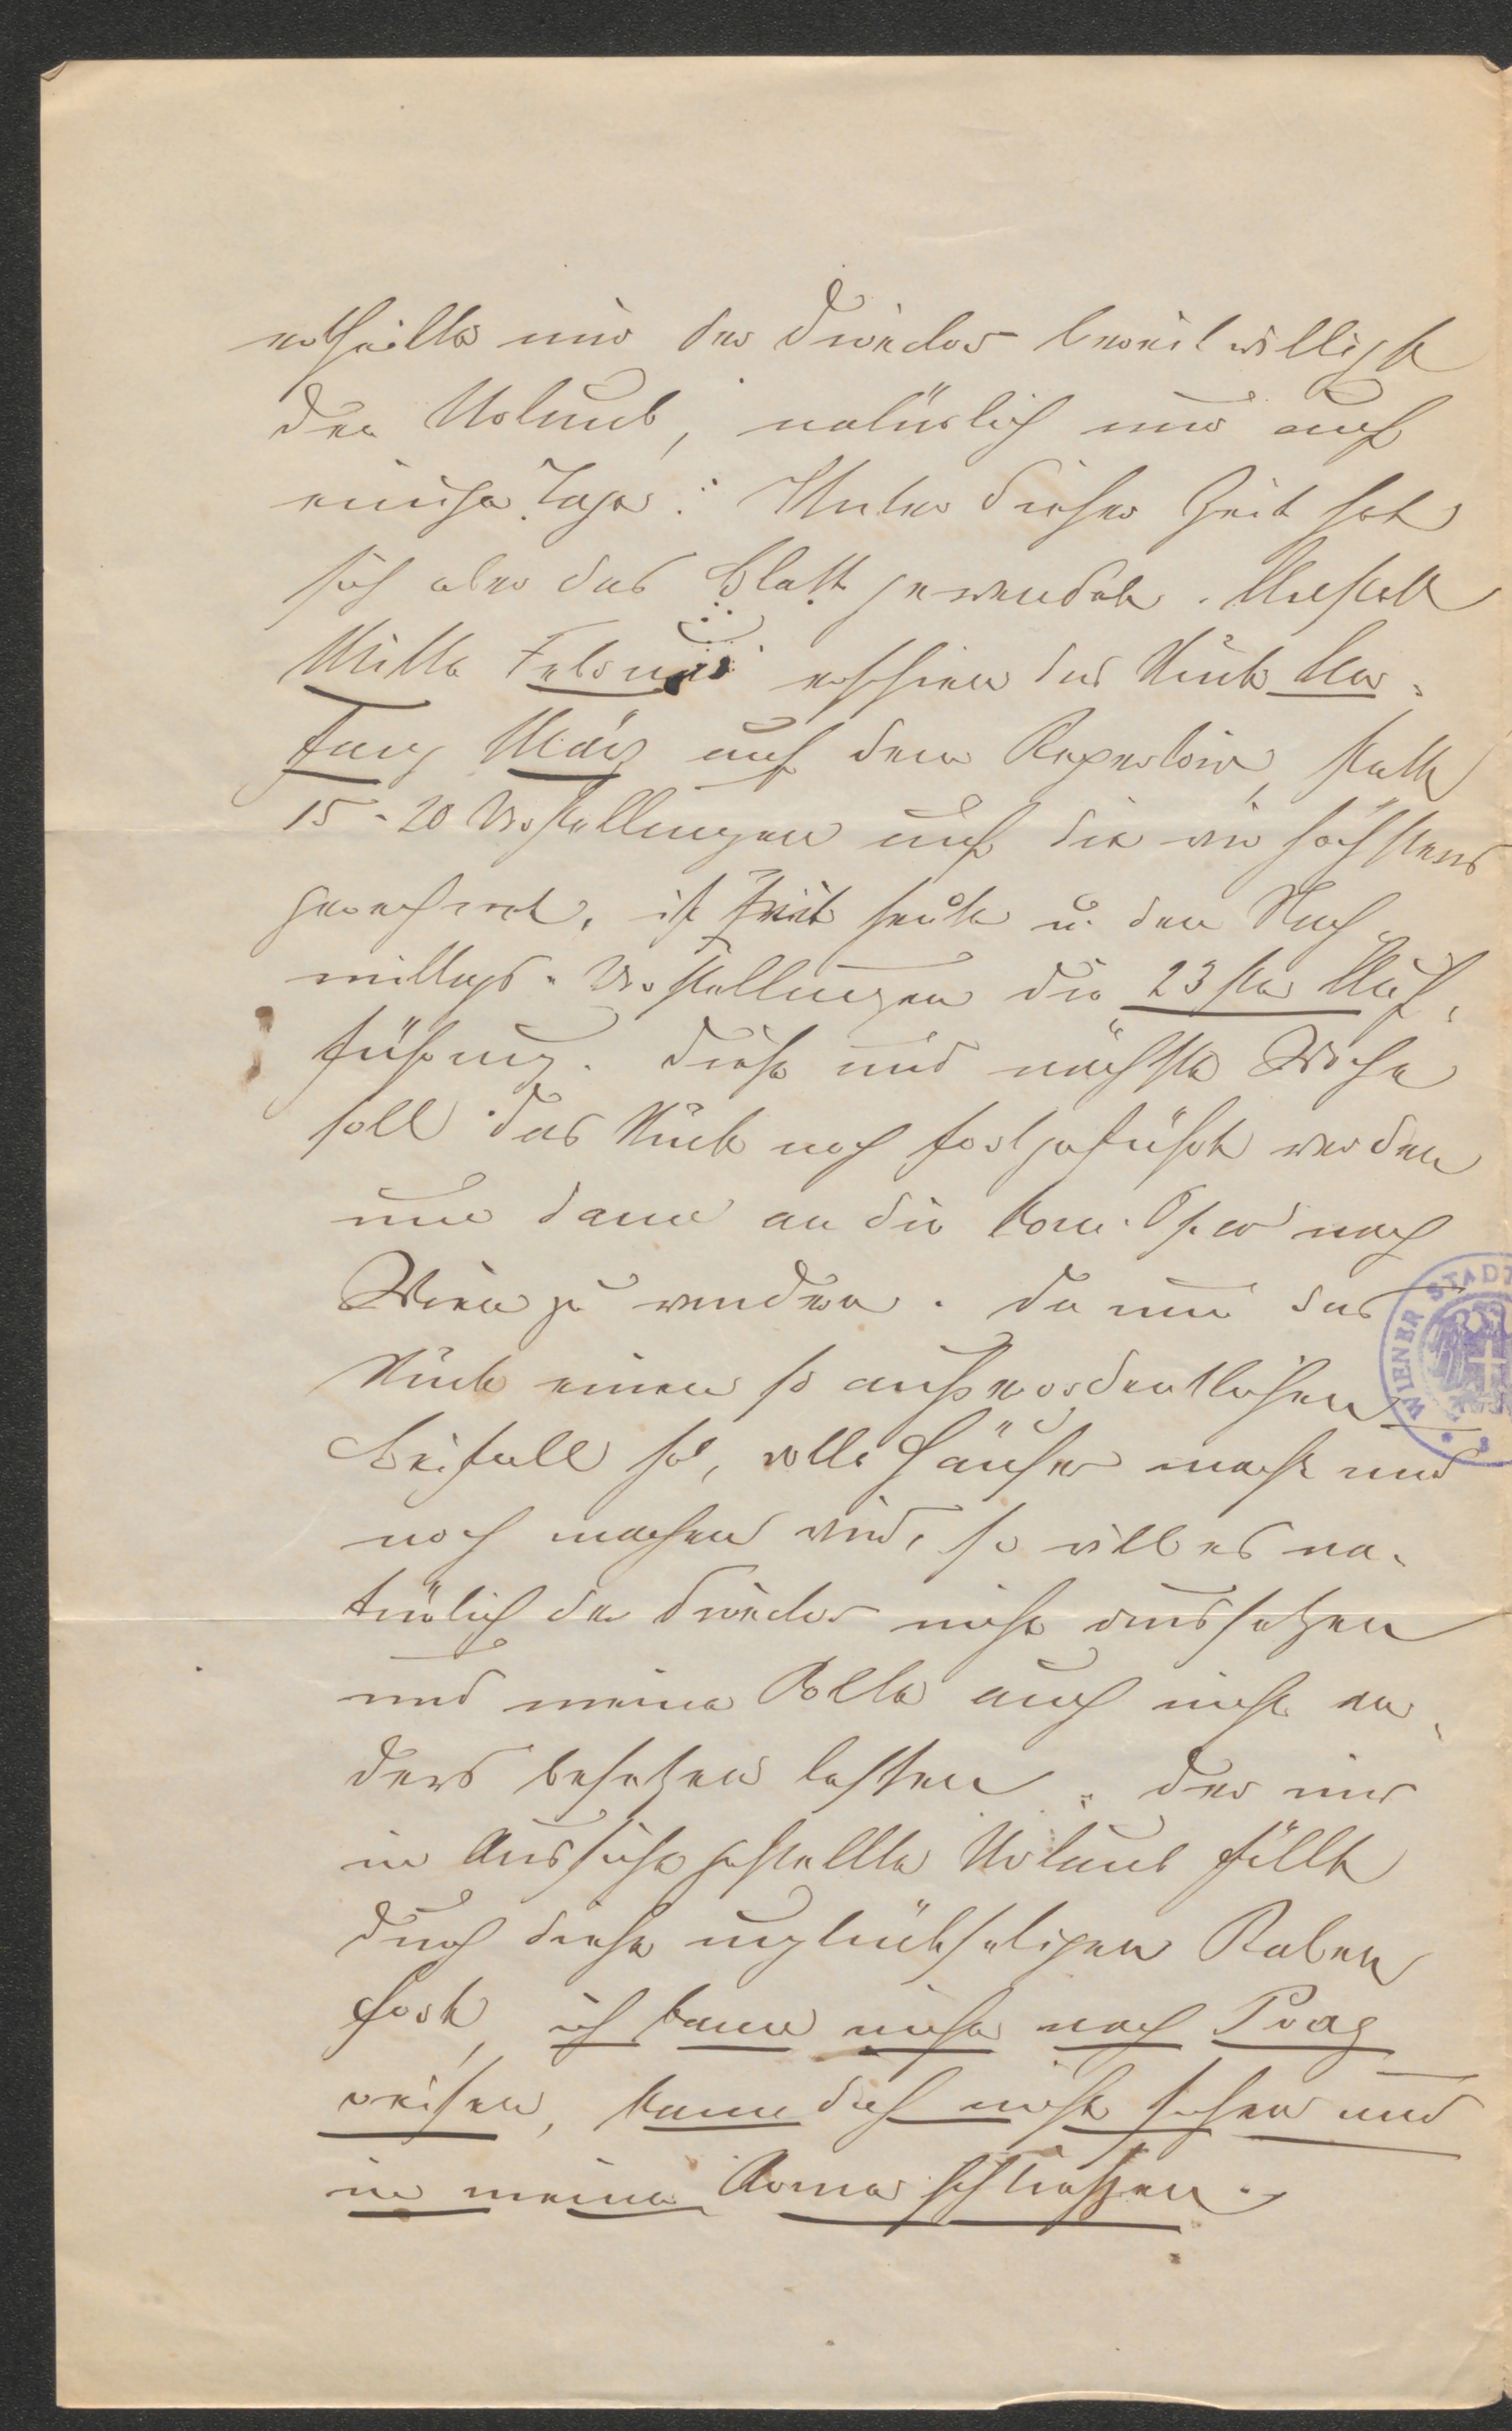 ertheilte mir der Director bereitwilligst
den Urlaub, natürlich nur auf
einige Tage. Unter dieser Zeit hat
sich aber das Blatt gewendet. Anstatt
Mitte Februar erschien das Stück An-
fang März auf dem Repertoir, statt
15-20 Vorstellungen auf die wir höchstens
gerechnet, ist mit heute u. den Nach-
mittags-Vorstellungen die 23ste Auf-
führung. Diese und nächste Woche
soll das Stück noch fortgeführt werden
um dann an die kom. Oper nach
Wien zu wandern. Da nun das
Stück einen so außerordentlichen
Beifall hat, volle Häuser macht und
noch machen wird, so will es na-
türlich der Director nicht aussetzen
und meine Rolle auch nicht an-
ders besetzen lassen. Der mir
in Aussicht gestellte Urlaub fällt
durch diese unglückseligen Raben
fort, ich kann nicht nach Prag
reisen, kann dich nicht sehen und
in meine Arme schließen.
WIENER STADT